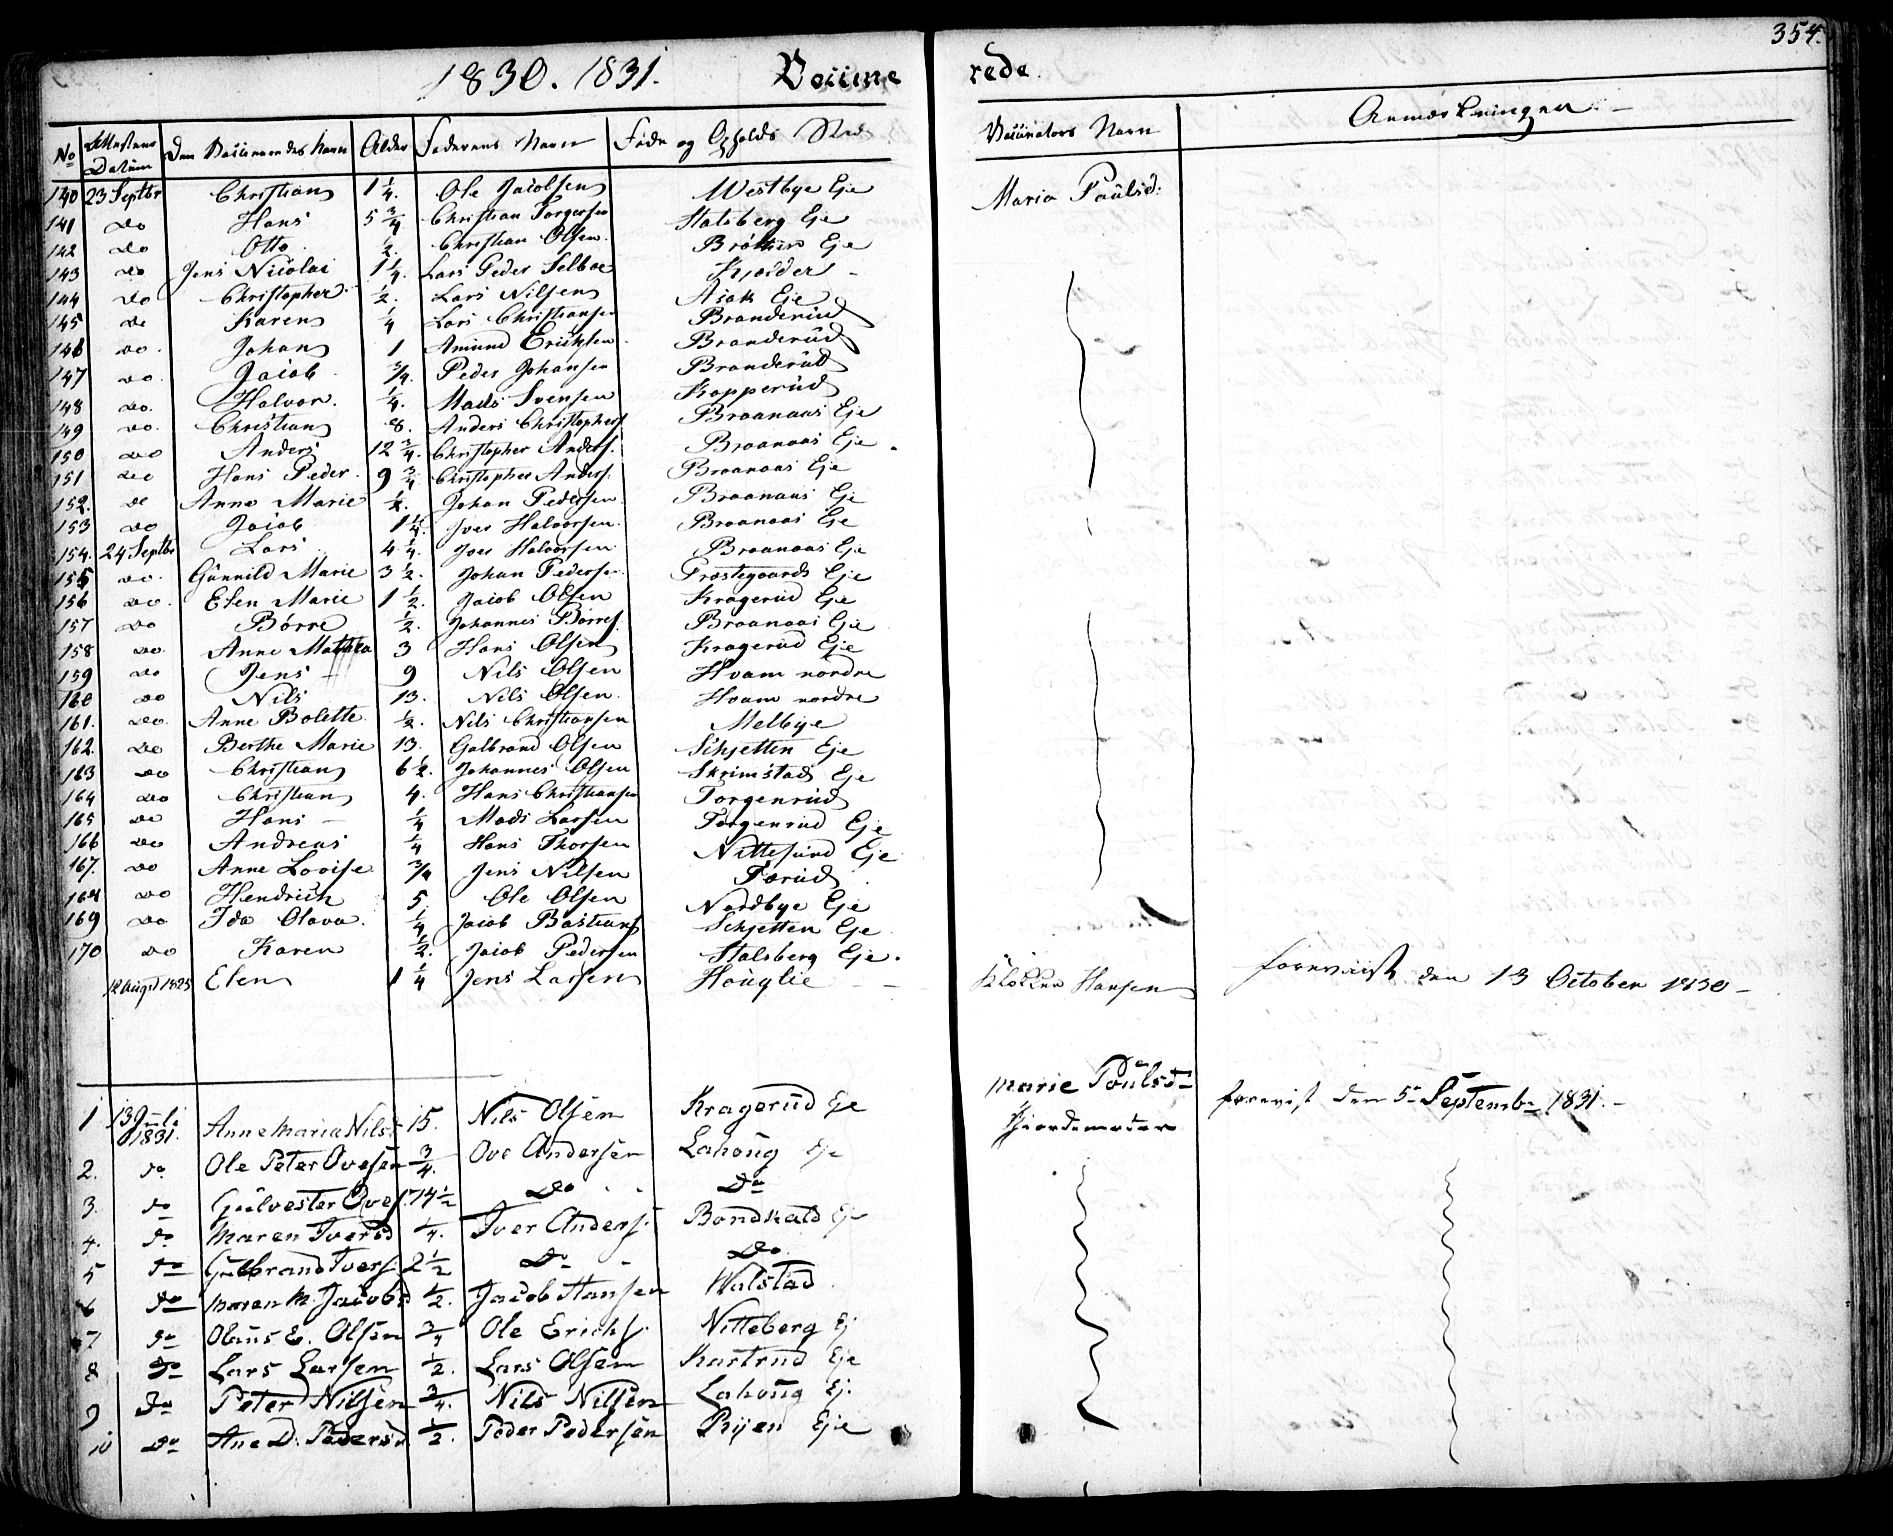 354.
1830. 1831. Vaccine rede.
No Attestens Datum Den Vaccineredes Navn Alder Faderens Navn Føde og Opholds Sted Vaccinators Navn Anmærkninger
140 23 Septbr Christian 1 1/4. Ole Jacobsen Westbye Eje Maria Paulsd:
141 do Hans 5 3/4 Christian Torgersen Stalsberg Eje
142 do Otto 1/2. Christian Olsen Bråthen Eje
143 do Jens Nicolai 1 1/4. Lars Peder Selboe
144 do Christopher 1/2. Lars Nilsen Asak Eje
145 do Karen 1/4 Lars Christiansen Branderud
146 do. Johan 1 Amund Erichsen Branderud
147 do. Jacob 3/4. Peder Johansen Branderud
148 do. Halvor. 1/4. Mads Svensen Kopperud
149 do. Christian 8. Anders Christophers. Braanaas Eje
150 do Anders 12 3/4. Christopher Anders. Braanaas Eje
151 do Hans Peder 9 3/4 Christopher Anders. Braanaas Eje
152. do Anne Marie 1/2. Johan Pedersen Braanaas Eje
153 do Jacob 1 1/4. Iver Halvorsen Braanaas Eje
154. 24 Septbr Lars 4 1/4. Iver Halvorsen Braanaas Eje
155 do. Gunnild Marie 3 1/2. Johan Pedersen Præstegaards Eje
156 do. Elen Marie 1 1/2. Jacob Olsen Kragerud Eje
157 do Børre 1/2. Johannes Børres. Braanaas Eje
158 do. Anne Mathea 3 Hans Olsen Kragerud Eje
159 do Jens 9 Nils Olsen Hvam nordre
160 do Nils 13. Nils Olsen Hvam nordre
161. do. Anne Bolette 1/2. Nils Christiansen Melbye
162. do Berthe Marie 13. Gulbrand Olsen Schjetten Eje
163 do Christian 6 1/2. Johannes Olsen Skrimstad Eje
164 do Christian 4. Hans Christiansen Torgenrud
165 do Hans 1/4 Mads Larsen Torgenrud Eje
166 do Andreas 1/4 Hans Thorsen Eje
167. do Anne Lovise 3/4 Jens Nilsen Tærud
168 do Hendrich 5 Ole Olsen Nordbye Eje
169 do Ida Olava 1/4 Jacob Bastians. Schjetten Eje
170 do Karen 1/2. Jacob Pedersen Stalsberg Eje.
12 Augst 1825 Elen 1 1/4 Jens Larsen Houglie Klokker Hansen foreviist den 13 October 1830
1 13 Juli 1831. Anne Maria Nilsd. 15. Nils Olsen Kragerud Eje Marie Poulsd. Gjordemoder forevist den 5 Septembr 1831.
2. do Ole Peter Ovesen 3/4. Ove Andersen Lahoug Eje
3. do Gulvester Oves. 14 1/2 do do
4. do Maren Iversd 1/4. Iver Anders. Bondkald Eje
5 do Gulbrand Ivers. 2 1/2 do do
6 do Maren M. Jacobsd 1/2. Jacob Hansen Walstad
7 do Olaus E. Olsen 3/4 Ole Erichs. Nitteberg Ej
8 do Lars Larsen 1/2. Lars Olsen Kartrud Eje
9 do Peter Nilsen 3/4. Nils Nilsen Lahoug Ej.
10 do Ane D. Pedersd 1/2. Peder Pedersen Ryen Eje